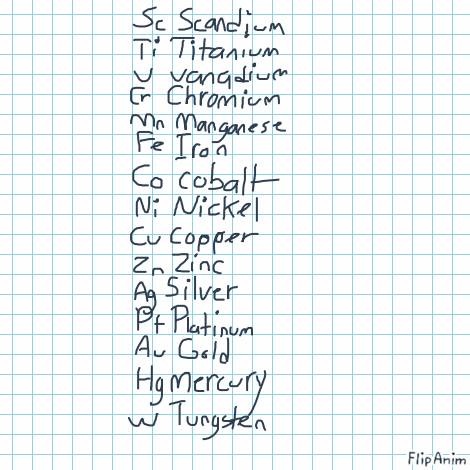 Sc Scandium
Ti Titanium
V vanadium
Cr Chromium
Mn Manganese
Fe Iron
Co cobalt
Ni Nickel
Cu Copper
Zn Zinc
Ag Silver
Pt Platinum
Au Gold
Hg Mercury
W Tungsten
FlipAnim